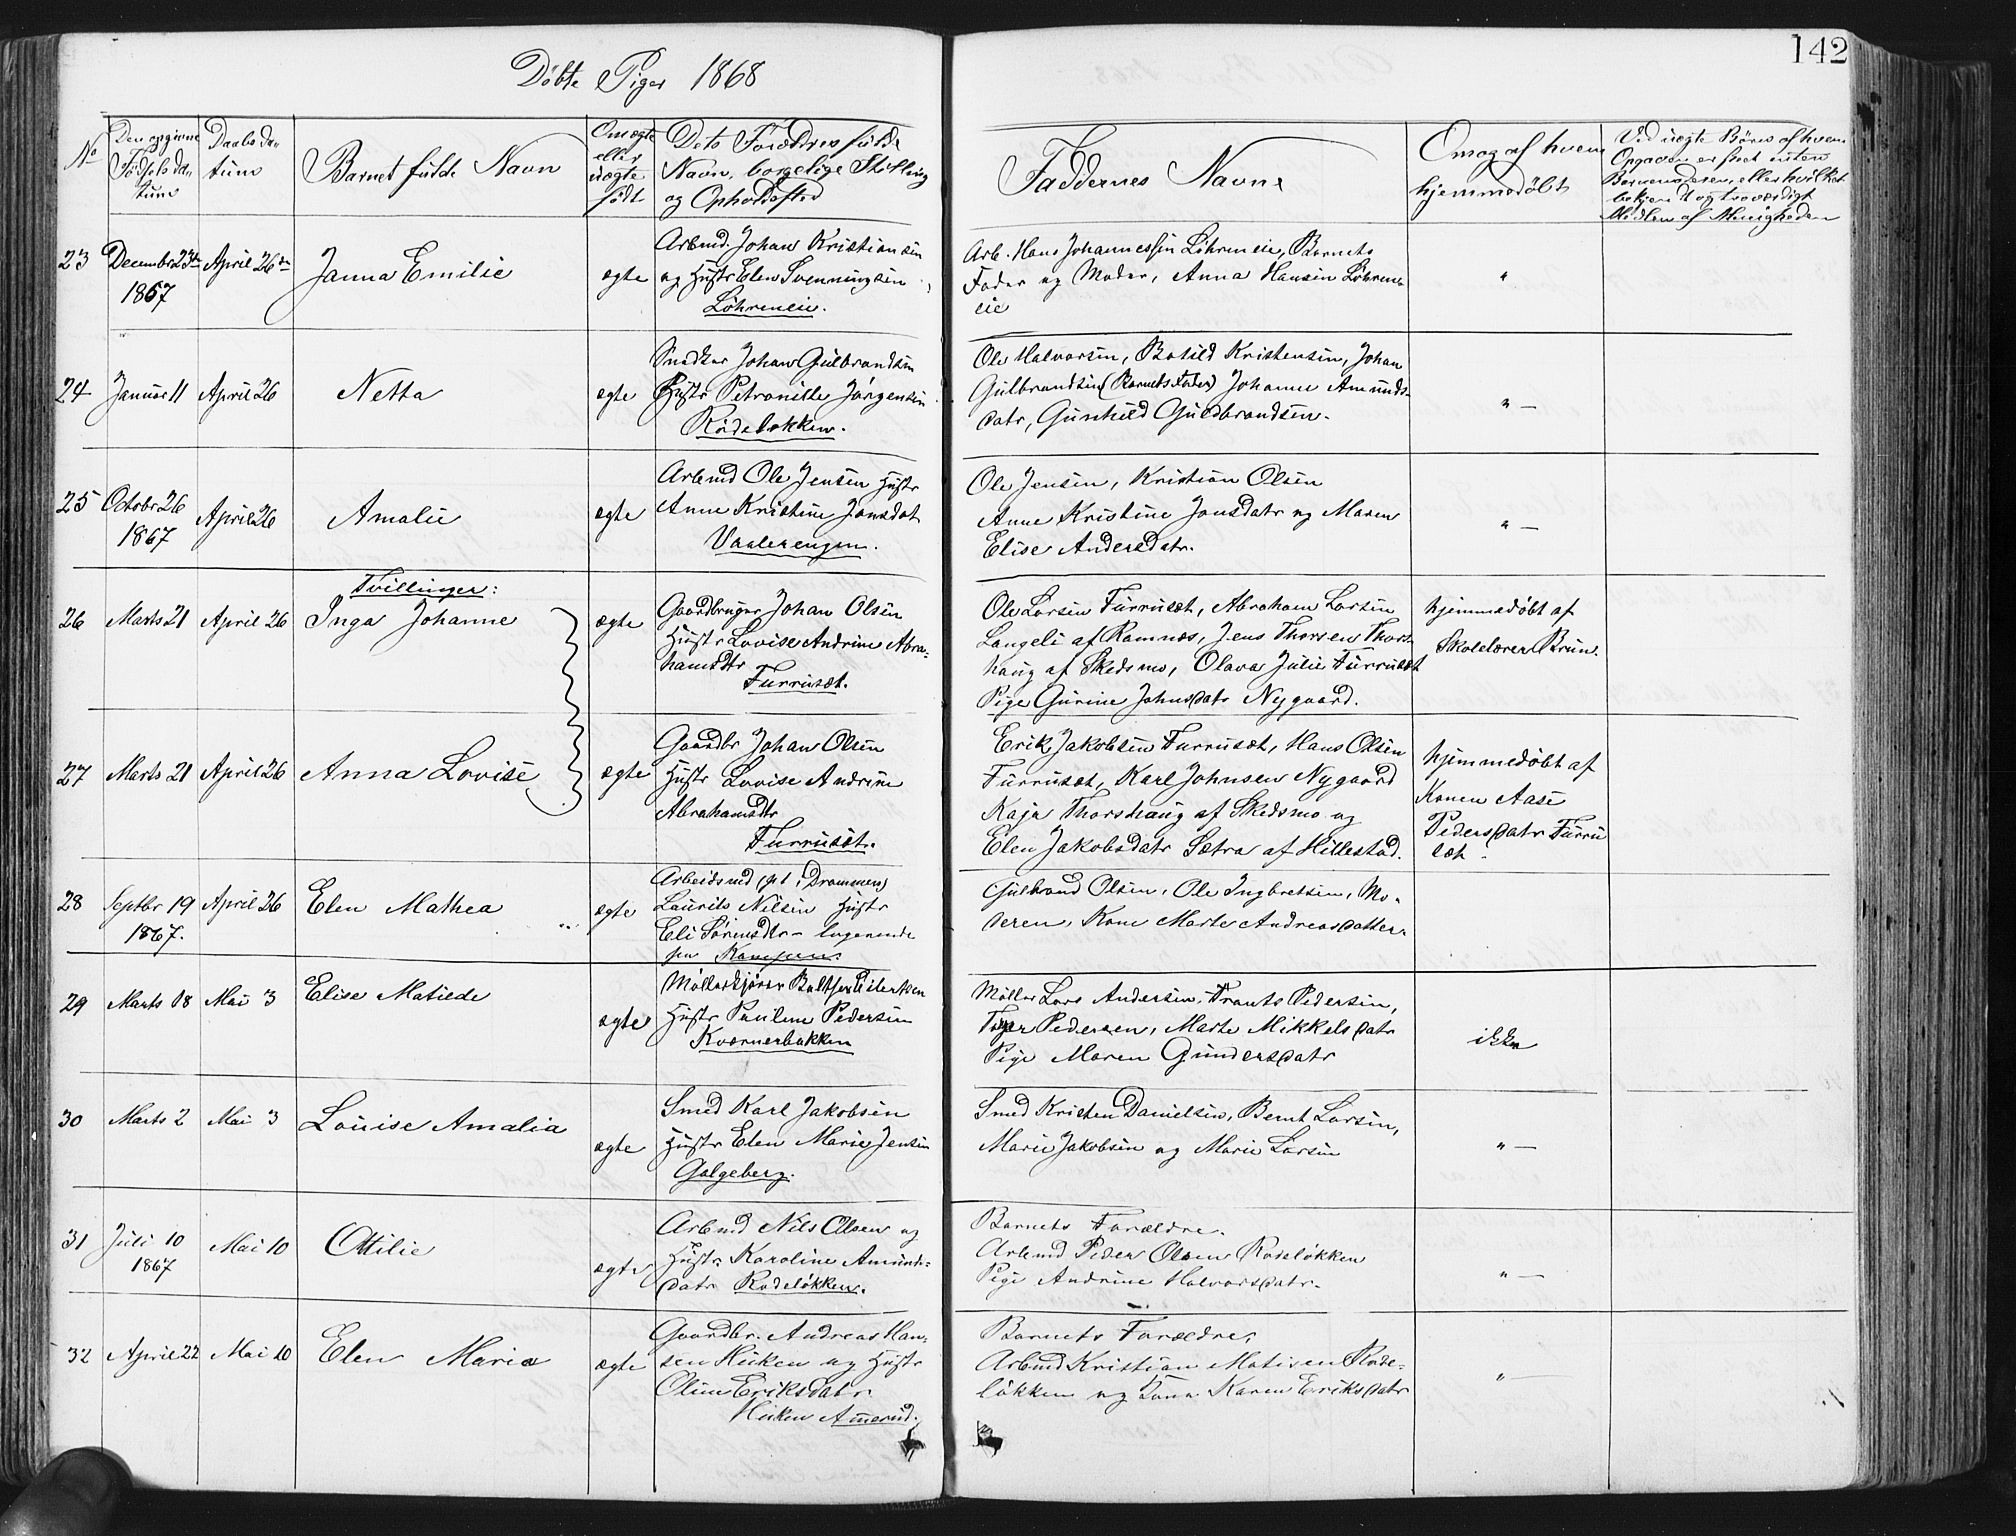 142
Döbte Piger 1868
No
Den opgivne
Födselsda-
tum
Daabsda-
tum
Barnet fulde Navn
Om ægte
eller
uægte
födt
Dets Forældres fulde
Navn, borgelige Stilling
og Opholdssted
Faddernes Navne
Om og af hvem
hjemmedöbt
Ved uægte Börn af hvem
Opgaven er skeet enten
Barnemoderen, eller hvilket
bekjendt og troværdigt
Medlem af Menigheden
23 Decembr 23de April 26de Janna Emilie ægte
1867
Arbmd. Johan Kristiansen
og Hustr Elen Svenningsen
Löhreneie.
Arb. Hans Johannessen Löhreneie, Barnets
Fader og Moder, Anna Hansen Löhren-
eie
"
24 Januar 11 April 26 Netta ægte
Snedker Johan Gulbrandsen
Hustr Petronille Jörgensen
Rödelökken.
Ole Halvorsen, Botild Kristensen, Johan
Gulbrandsen (Barnets Fader) Johanne Amunds-
datr, Gunhild Guldbrandsen.
" —
25 Octobr 26 April 26 Amalie ægte
1867
Arbmd Ole Jensen Hustr
Anne Kristine Jonsdat
Vaalerengen.
Ole Jensen, Kristian Olsen
Anne Kristine Jonsdatr og Maren
Elise Andersdatr.
" —
Tvillinger:
26 Marts 21 April 26 Inga Johanne ægte
Gaardbruger Johan Olsen
Hustr Lovise Andrine Abra-
hamsdtr
Furruset.
Ole Larsen Furruset, Abraham Larsen
Langeli af Ramnæs, Jens Thorsen Thors-
haug af Skedsmo, Olava Julie Furruset
Pige Gurine Johnsdatr Nygaard.
hjemmedöbt af
Skolelærer Brun.
27 Marts 21 April 26 Anna Lovise ægte
Gaardbr Johan Olsen
Hustr Lovise Andrine
Abrahamsdtr
Furruset.
Erik Jakobsen Furruset, Hans Olsen
Furruset, Karl Johnsen Nygaard
Kaja Thorshaug af Skedsmo og
Elen Jakobsdatr Sætra af Hillestad.
hjemmedöbt af
Konen Aase
Pedersdatr Furru
set.
28 Septbr 19 April 26 Elen Mathea ægte
1867.
Arbeidsmd (pt i Drammen)
Laurits Nilsen Hustr
Eli Sörensdtr - logerende
paa Kampen.
Gulbrand Olsen, Ole Ingbretsen, Mo-
deren, Kone Marte Andreasdatter.
29 Marts 18 Mai 3 Elise Matilde ægte
Möllerkjörer
Hustr Pauline Pedersen
Kværnerbakken
Möller Lars Andersen, Frants Pedersen,
Pedersen, Marte Mikkelsdatr
Pige Maren Gundersdatr
ikke
30 Marts 2 Mai 3 Louise Amalia ægte
Smed Karl Jakobsen
Hustr Elen Marie Jensen
Galgeberg.
Smed Kristen Danielsen, Bernt Larsen,
Marie Jakobsen og Marie Larsen
" —
31 Juli 10 Mai 10 Ottilie ægte
1867
Arbmd Nils Olsen og
Hustr Karoline Amunds-
datr Rodelökken.
Barnets Forældre.
Arbmd Peder Olsen Rodelökken
Pige Andrine Halvorsdatr.
" —
32 April 22 Mai 10 Elen Maria ægte
Gaardbr. Andreas Han-
sen Heiken og Hustr
Oline Eriksdatr
Heiken Amerud.
Barnets Forældre,
Arbmd Kristian Matisen Rode-
lökken og Kone Karen Eriksdatr
" —